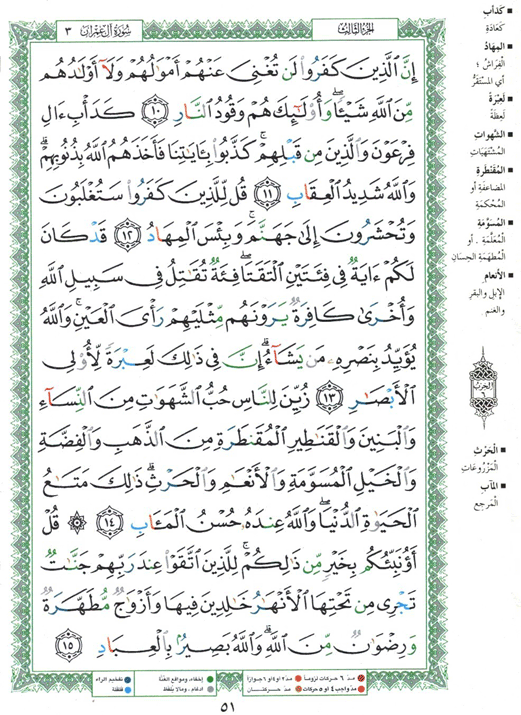 سُورَةُ آلِ عِمْرَان ٣
الجُزْءُ الثَّالِثُ
إِنَّ ٱلَّذِينَ كَفَرُوا۟ لَن تُغْنِىَ عَنْهُمْ أَمْوَٰلُهُمْ وَلَآ أَوْلَٰدُهُم
مِّنَ ٱللَّهِ شَيْـًٔا ۖ وَأُو۟لَٰٓئِكَ هُمْ وَقُودُ ٱلنَّارِ ١٠ كَدَأْبِ ءَالِ
فِرْعَوْنَ وَٱلَّذِينَ مِن قَبْلِهِمْ ۚ كَذَّبُوا۟ بِـَٔايَٰتِنَا فَأَخَذَهُمُ ٱللَّهُ بِذُنُوبِهِمْ ۗ
وَٱللَّهُ شَدِيدُ ٱلْعِقَابِ ١١ قُل لِّلَّذِينَ كَفَرُوا۟ سَتُغْلَبُونَ
وَتُحْشَرُونَ إِلَىٰ جَهَنَّمَ ۚ وَبِئْسَ ٱلْمِهَادُ ١٢ قَدْ كَانَ
لَكُمْ ءَايَةٌ فِى فِئَتَيْنِ ٱلْتَقَتَا ۖ فِئَةٌ تُقَٰتِلُ فِى سَبِيلِ ٱللَّهِ
وَأُخْرَىٰ كَافِرَةٌ يَرَوْنَهُم مِّثْلَيْهِمْ رَأْىَ ٱلْعَيْنِ ۚ وَٱللَّهُ
يُؤَيِّدُ بِنَصْرِهِۦ مَن يَشَآءُ ۗ إِنَّ فِى ذَٰلِكَ لَعِبْرَةً لِّأُو۟لِى
ٱلْأَبْصَٰرِ ١٣ زُيِّنَ لِلنَّاسِ حُبُّ ٱلشَّهَوَٰتِ مِنَ ٱلنِّسَآءِ
وَٱلْبَنِينَ وَٱلْقَنَٰطِيرِ ٱلْمُقَنطَرَةِ مِنَ ٱلذَّهَبِ وَٱلْفِضَّةِ
وَٱلْخَيْلِ ٱلْمُسَوَّمَةِ وَٱلْأَنْعَٰمِ وَٱلْحَرْثِ ۗ ذَٰلِكَ مَتَٰعُ
ٱلْحَيَوٰةِ ٱلدُّنْيَا ۖ وَٱللَّهُ عِندَهُۥ حُسْنُ ٱلْمَـَٔابِ ١٤ ۞ قُلْ
أَؤُنَبِّئُكُم بِخَيْرٍ مِّن ذَٰلِكُمْ ۚ لِلَّذِينَ ٱتَّقَوْا۟ عِندَ رَبِّهِمْ جَنَّٰتٌ
تَجْرِى مِن تَحْتِهَا ٱلْأَنْهَٰرُ خَٰلِدِينَ فِيهَا وَأَزْوَٰجٌ مُّطَهَّرَةٌ
وَرِضْوَٰنٌ مِّنَ ٱللَّهِ ۗ وَٱللَّهُ بَصِيرٌۢ بِٱلْعِبَادِ ١٥
كَدَأْبِ
كَعَادَةِ
المِهَادُ
الفِرَاشُ ؛
أي المستَقَرُّ
لَعِبْرَةً
لَعِظَةً
الشَّهَوَاتِ
المُشْتَهَيَاتِ
المُقَنْطَرَةِ
المضاعَفَةِ أو
المُحْكَمَةِ
المُسَوَّمَةِ
المُعَلَّمَةِ . أو
المُطَهَّمَةِ الحِسَانِ
الأَنْعَامِ
الإبل والبقر
والغنم
الحِزْبُ
٦
الحَرْثِ
المَزْرُوعَاتِ
المَآبِ
المَرْجِعِ
مدّ ٦ حركات لزوماً
مدّ ٢ أو ٤ أو ٦ جوازاً
إخفاء، ومواقع الغنّة
تفخيم الراء
مدّ واجب ٤ أو ٥ حركات
مدّ حركتان
ادغام، ومالا يلفظ
قلقلة
٥١